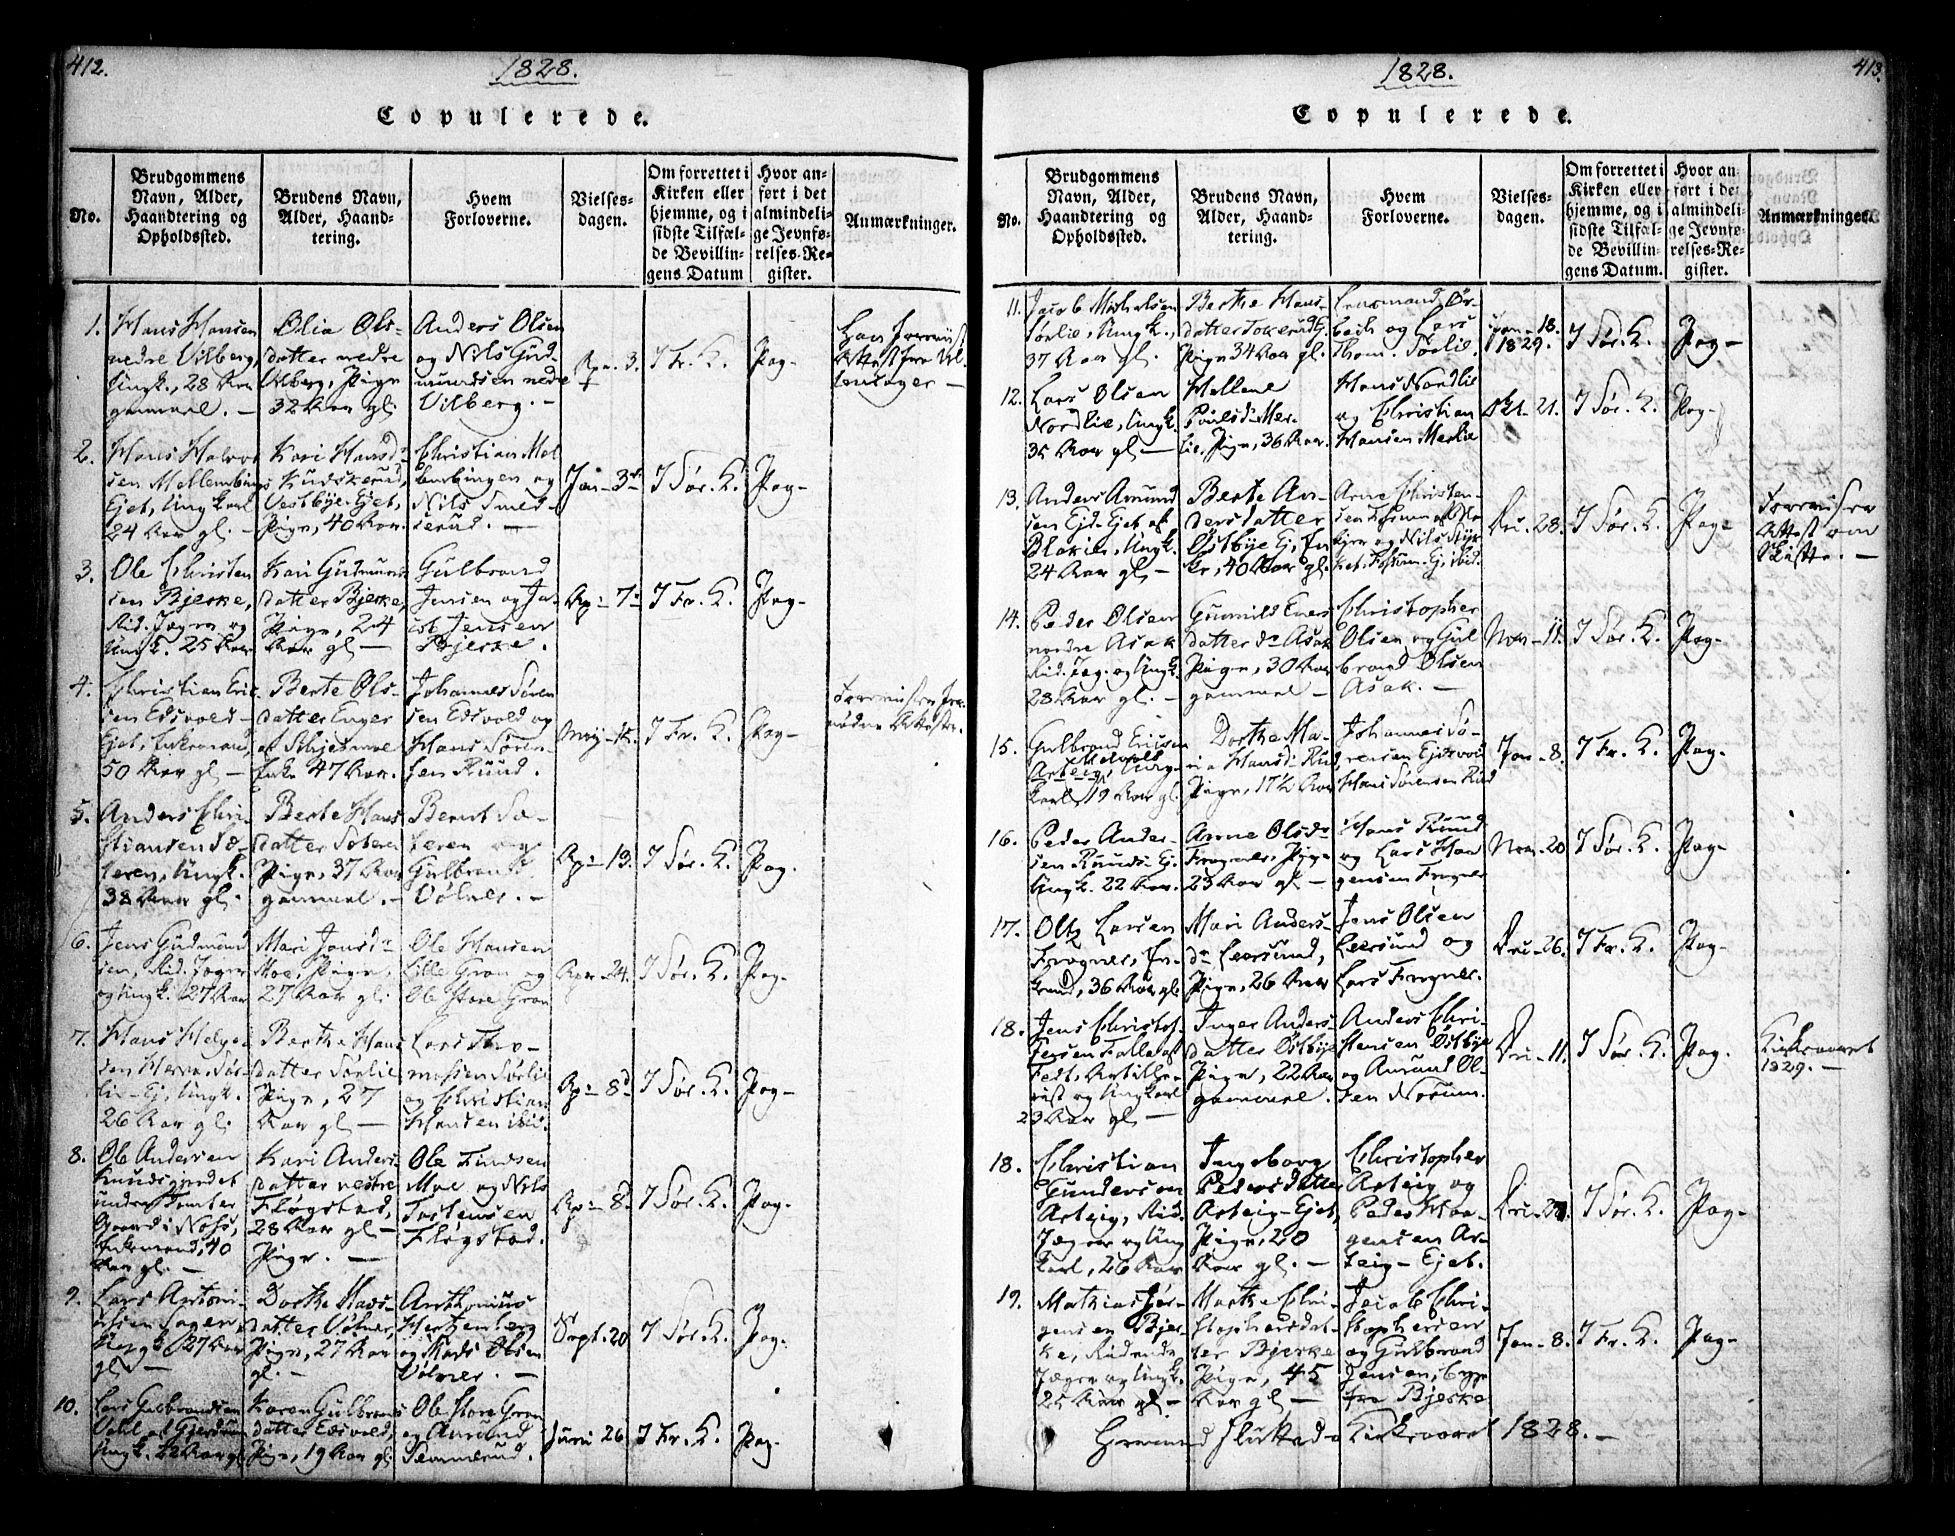 412.
1828.
Copulerede.
No.
Brudgommens Navn, Alder, Haandtering og Opholdssted.
Brudens Navn, Alder, Haandtering.
Hvem Forloverne.
Vielses-dagen.
Om forrettet i Kirken eller hjemme, og i sidste Tilfælde Bevillingens Datum
Hvor anført i det almindelige Jevnførelses-Register.
Anmærkninger.
1. Hans Hansen
nedre Vilberg,
Ungk., 28 Aar
gammel. –
Olia Ols-
datter nedre
Vilberg, Pige
32 Aar gl.
Anders Olsen
og Nils Gud-
mundsen nedre
Vilberg. –
Apr. 3.
I Fr. K.
Pag-
2. Hans Halvor
sen Mellembings
Ejet, Ungkarl
24 Aar gl. –
Kari Hansd.
Kuskerud
Vestbye-Ejet,
Pige, 40 Aar.
Christian Mel
lembingen og
Nils Smed-
serud. –
Jan- 3
I Sør. K.
Pag-
3. Ole Christen
sen Bjerke,
Rid. Jæger og
Ungk. 25 Aar
Kari Gudmunds
datter Bjerke,
Pige, 24
Aar gl –
Gulbrand
Jensen og Ja-
cob Jensen
Bjerke.
Ap- 7
I Fr. K.
Pag-
4. Christian Eric
sen Edsvold-
Ejet, Enkemand,
50 Aar gl –
Berte Ols-
datter Enger
af
Enke 47 Aar.
Johannes Søren
sen Edsvold og
Hans Sören-
sen Ruud.
May-
I Fr. K.
Pag-
5. Anders Chri-
stiansen Sæ-
teren, Ungk.
38 Aar gl.
Berte Hans
datter
Pige, 37 Aar
gammel. –
Berent Sæ-
teren og
Gulbrand
Völner. –
Ap- 13.
I Sør. K.
Pag.
6. Jens Gudmund
sen, Rid. Jæger
og Ungk. 27 Aar
Mari Jensd.
Moe, Pige,
27 Aar gl.
Ole Hansen
Lille Gran og
Ole Store Gran
Apr. 24.
I Sør. K.
Pag-
7. Hans Helge-
sen Sör-
lie-Ej, Ungk.
26 Aar gl.
Berthe Hans
datter Sörlie
Pige, 27
Aar gl –
Lars Tho-
massen Sørlie
og Christian
Hansen ibid.
Ap- 8
I Sør. K.
Pag-
8. Ole Andersen
under Tomter
Gaard i
Enkemand, 40
Aar gl. –
Kari Anders-
datter nedre
Fløgstad,
28 Aar gl –
Pige. –
Ole
Moe og Nils
Tostensen
Fløgstad.
Ap- 8
I Sør. K.
Pag.
9. Lars Antoni-
27 Aar
gl. –
Dorthe Mads-
datter Völner,
Pige, 27 Aar
gl. –
Anthonius
Hertzenberg
og Mads Olsen
Völner. –
Sept. 20
I Sør. K.
Pag.
10. Lars Gulbrandsen
Ungk. 22 Aar gl
Karen Gulbrands
datter Edsvold,
Pige, 19 Aar gl
Ole Store Gran
og Amund
Juni 26
I Fr. K.
Pag.
413.
1828.
Copulerede.
No.
Brudgommens Navn, Alder, Haandtering og Opholdssted.
Brudens Navn, Alder, Haandtering.
Hvem Forloverne.
Vielses-dagen.
Om forrettet i Kirken eller hjemme, og i sidste Tilfælde Bevillingens Datum.
Hvor anført i det almindelige Jevnførelses-Register.
Anmærkninger.
11. Jacob Michelsen
Sørlie, Ungk.,
37 Aar gl.
Berthe Hans-
datter
Pige 34 Aar gl.
Lensmand Ør-
bech og Lars
Thom. Sørlie.
Jan- 18.
1829.
I Sør. K.
Pag-
12. Lars Olsen
Nordlie, Ungk.
35 Aar gl –
Hellene
Poulsd. Mer-
lie, Pige, 36 Aar.
Hans Nordlie
og Christian
Hansen Merlie
Okt. 21.
I Sør. K.
Pag-
13. Anders Amund
sen Ejd-Ejet af
Blakier, Ungk.
24 Aar gl. –
Berte An-
dersdatter
Østbye Ej, En
ke, 40 Aar gl.
Arne Christen-
sen
og Nils
ibid.
Dec- 28.
I Sør. K.
Pag-
14. Peder Olsen
nordre Asak
Rid. Jæg. og Ungk.
28 Aar gl. –
Gunnild Ener
datter Asak
Pige, 30 Aar
gammel –
Christopher
Olsen og Gul
brand Olsen
Asak. –
Nov- 11.
I Sør. K.
Pag-
15. Gulbrand Ericsen
Asteig, Ung-
karl 19 Aar gl.
Dorthe Ma-
ria Hansd. Rud
Pige, 17½ Aar
Johannes Sö-
rensen Ejdsvold
Hans Sørensen Rud
Jan- 8.
I Fr. K.
Pag-
16. Peder Ander-
sen Ruuds-Ej.
Ungk. 22 Aar.
Anne Olsd.
Frogner, Pige
23 Aar gl –
Hans Ruud
og Lars Haa
gensen Frogner
Nov- 20
I Sør. K.
Pag-
17. Oltz Larsen
Frogner, En-
kemd, 36 Aar gl
Mari Anders-
d. Leersund,
Pige, 26 Aar
Jens Olsen
Leersund og
Lars Frogner.
Dec- 26.
I Fr. K.
Pag-
18. Jens Christof-
fersen Falle af
Fedt, Artille-
rist og Ungkarl
23 Aar gl –
Inger Anders-
datter Östbye
Pige, 22 Aar
gammel.
Anders Chri-
stensen Østbye
og Amund Ol-
sen Norum.
Dec- 11.
I Sør. K.
Pag.
Kirkeaaret
1829. –
18. Christian
Gundersen
Asteig, Rid.
Jæger og Ung
karl, 26 Aar
Ingeborg
Pedersdatter
Asteig-Ejet,
Pige, 20
Aar gl. –
Christopher
Asteig og
Peder Haa-
gensen As-
teig-Ejet.
Dec-
I Sør. K.
Pag-
19. Mathias Jør-
gensen Bjer-
ke, Ridende
Jæger og Ungk.
25 Aar gl –
Marthe Chri-
stophersdat-
ter Bjerke
Pige, 45
Aar gl –
Jacob Chri-
stophersen
og Gulbrand
Jensen, begge
fra Bjerke
Jan- 8.
I Fr. K.
Pag-
Hermed sluttede Kirkeaaret 1828. –